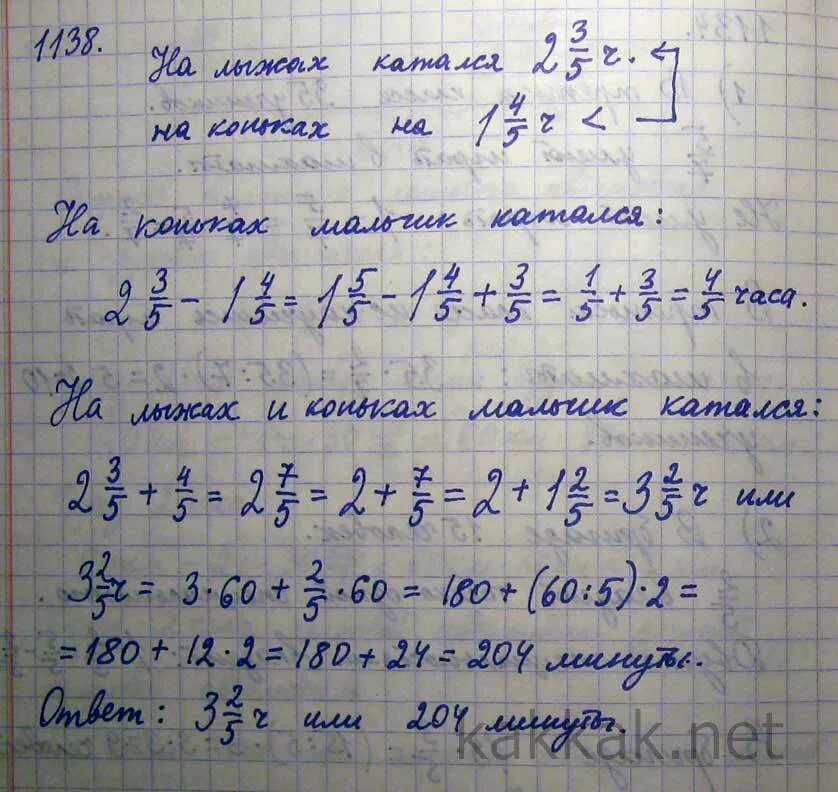 1138.
На лыжах катался 2 3/5 ч.
на коньках на 1 4/5 ч <
На коньках мальчик катался:
2 3/5 - 1 4/5 = 1 5/5 - 1 4/5 + 3/5 = 1/5 + 3/5 = 4/5 часа.
На лыжах и коньках мальчик катался:
2 3/5 + 4/5 = 2 7/5 = 2 + 7/5 = 2 + 1 2/5 = 3 2/5 ч или
3 2/5 ч = 3·60 + 2/5·60 = 180 + (60:5)·2 =
= 180 + 12·2 = 180 + 24 = 204 минуты.
Ответ: 3 2/5 ч или 204 минуты.
kakkak.net